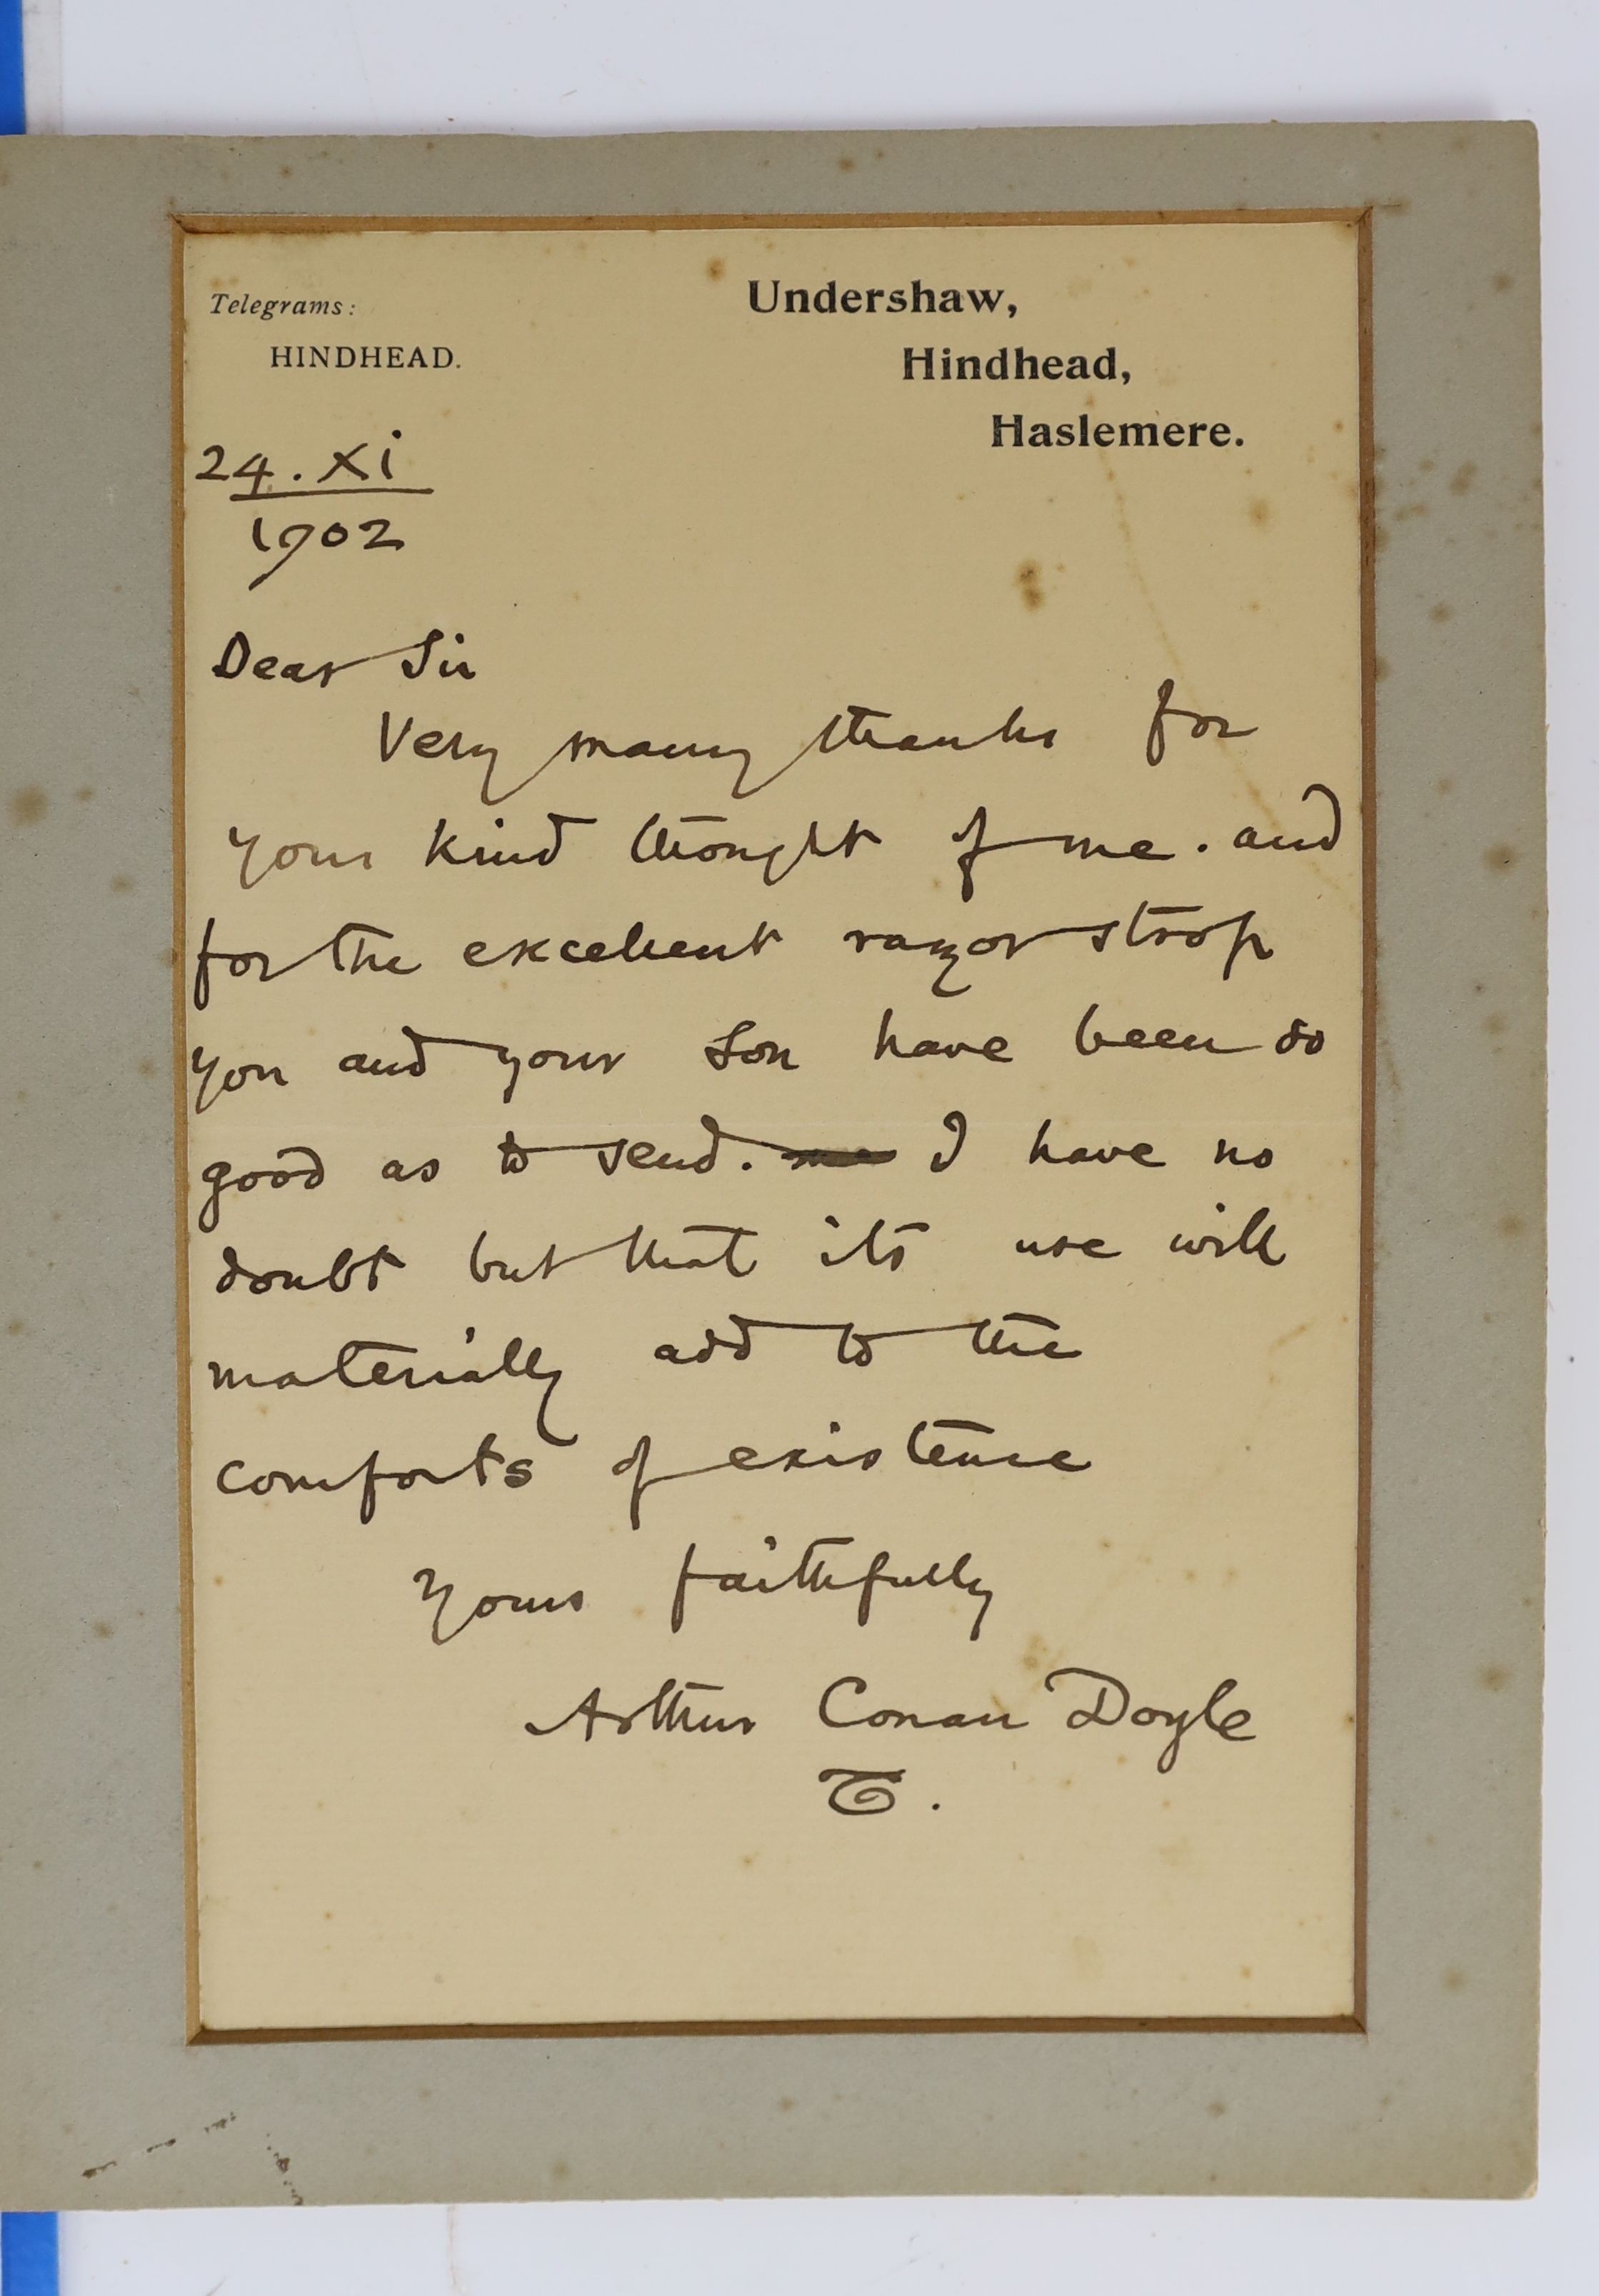 Telegrams:
HINDHEAD.
Undershaw,
Hindhead,
Haslemere.
24.XI
1902
Dear Sir
Very many thanks for
your kind thought of me. and
for the excellent razor strop
you and your son have been so
good as to send. I have no
doubt but that its use will
materially add to the
comforts of existence
Yours faithfully
Arthur Conan Doyle